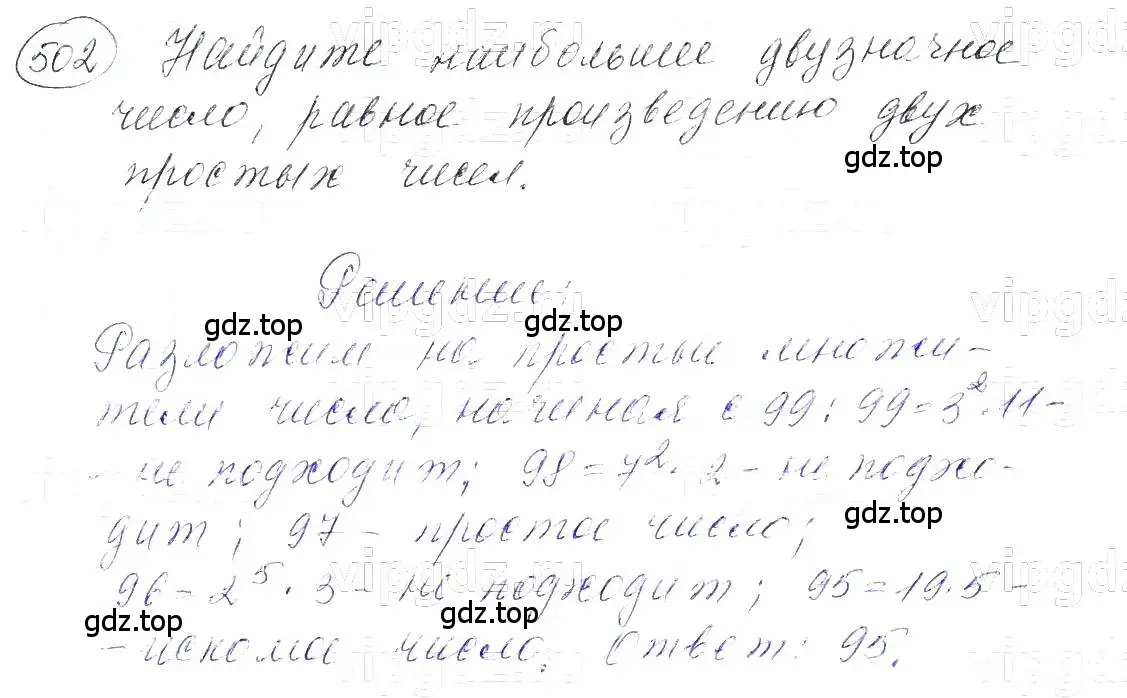 502 Найдите наибольшее двузначное
число, равное произведению двух
простых чисел.
gdz.top
Решение:
gdz.top gdz.top
Разложим на простые множи-
тели число, начиная с 99: 99=3²·11-
- не подходит; 98=7²·2 - не подхо-
дит; 97 - простое число;
gdz.top
96=2⁵·3- не подходит; 95=19·5-
gdz.top gdz.top
- искомое число. Ответ: 95.
vipgdz.ru